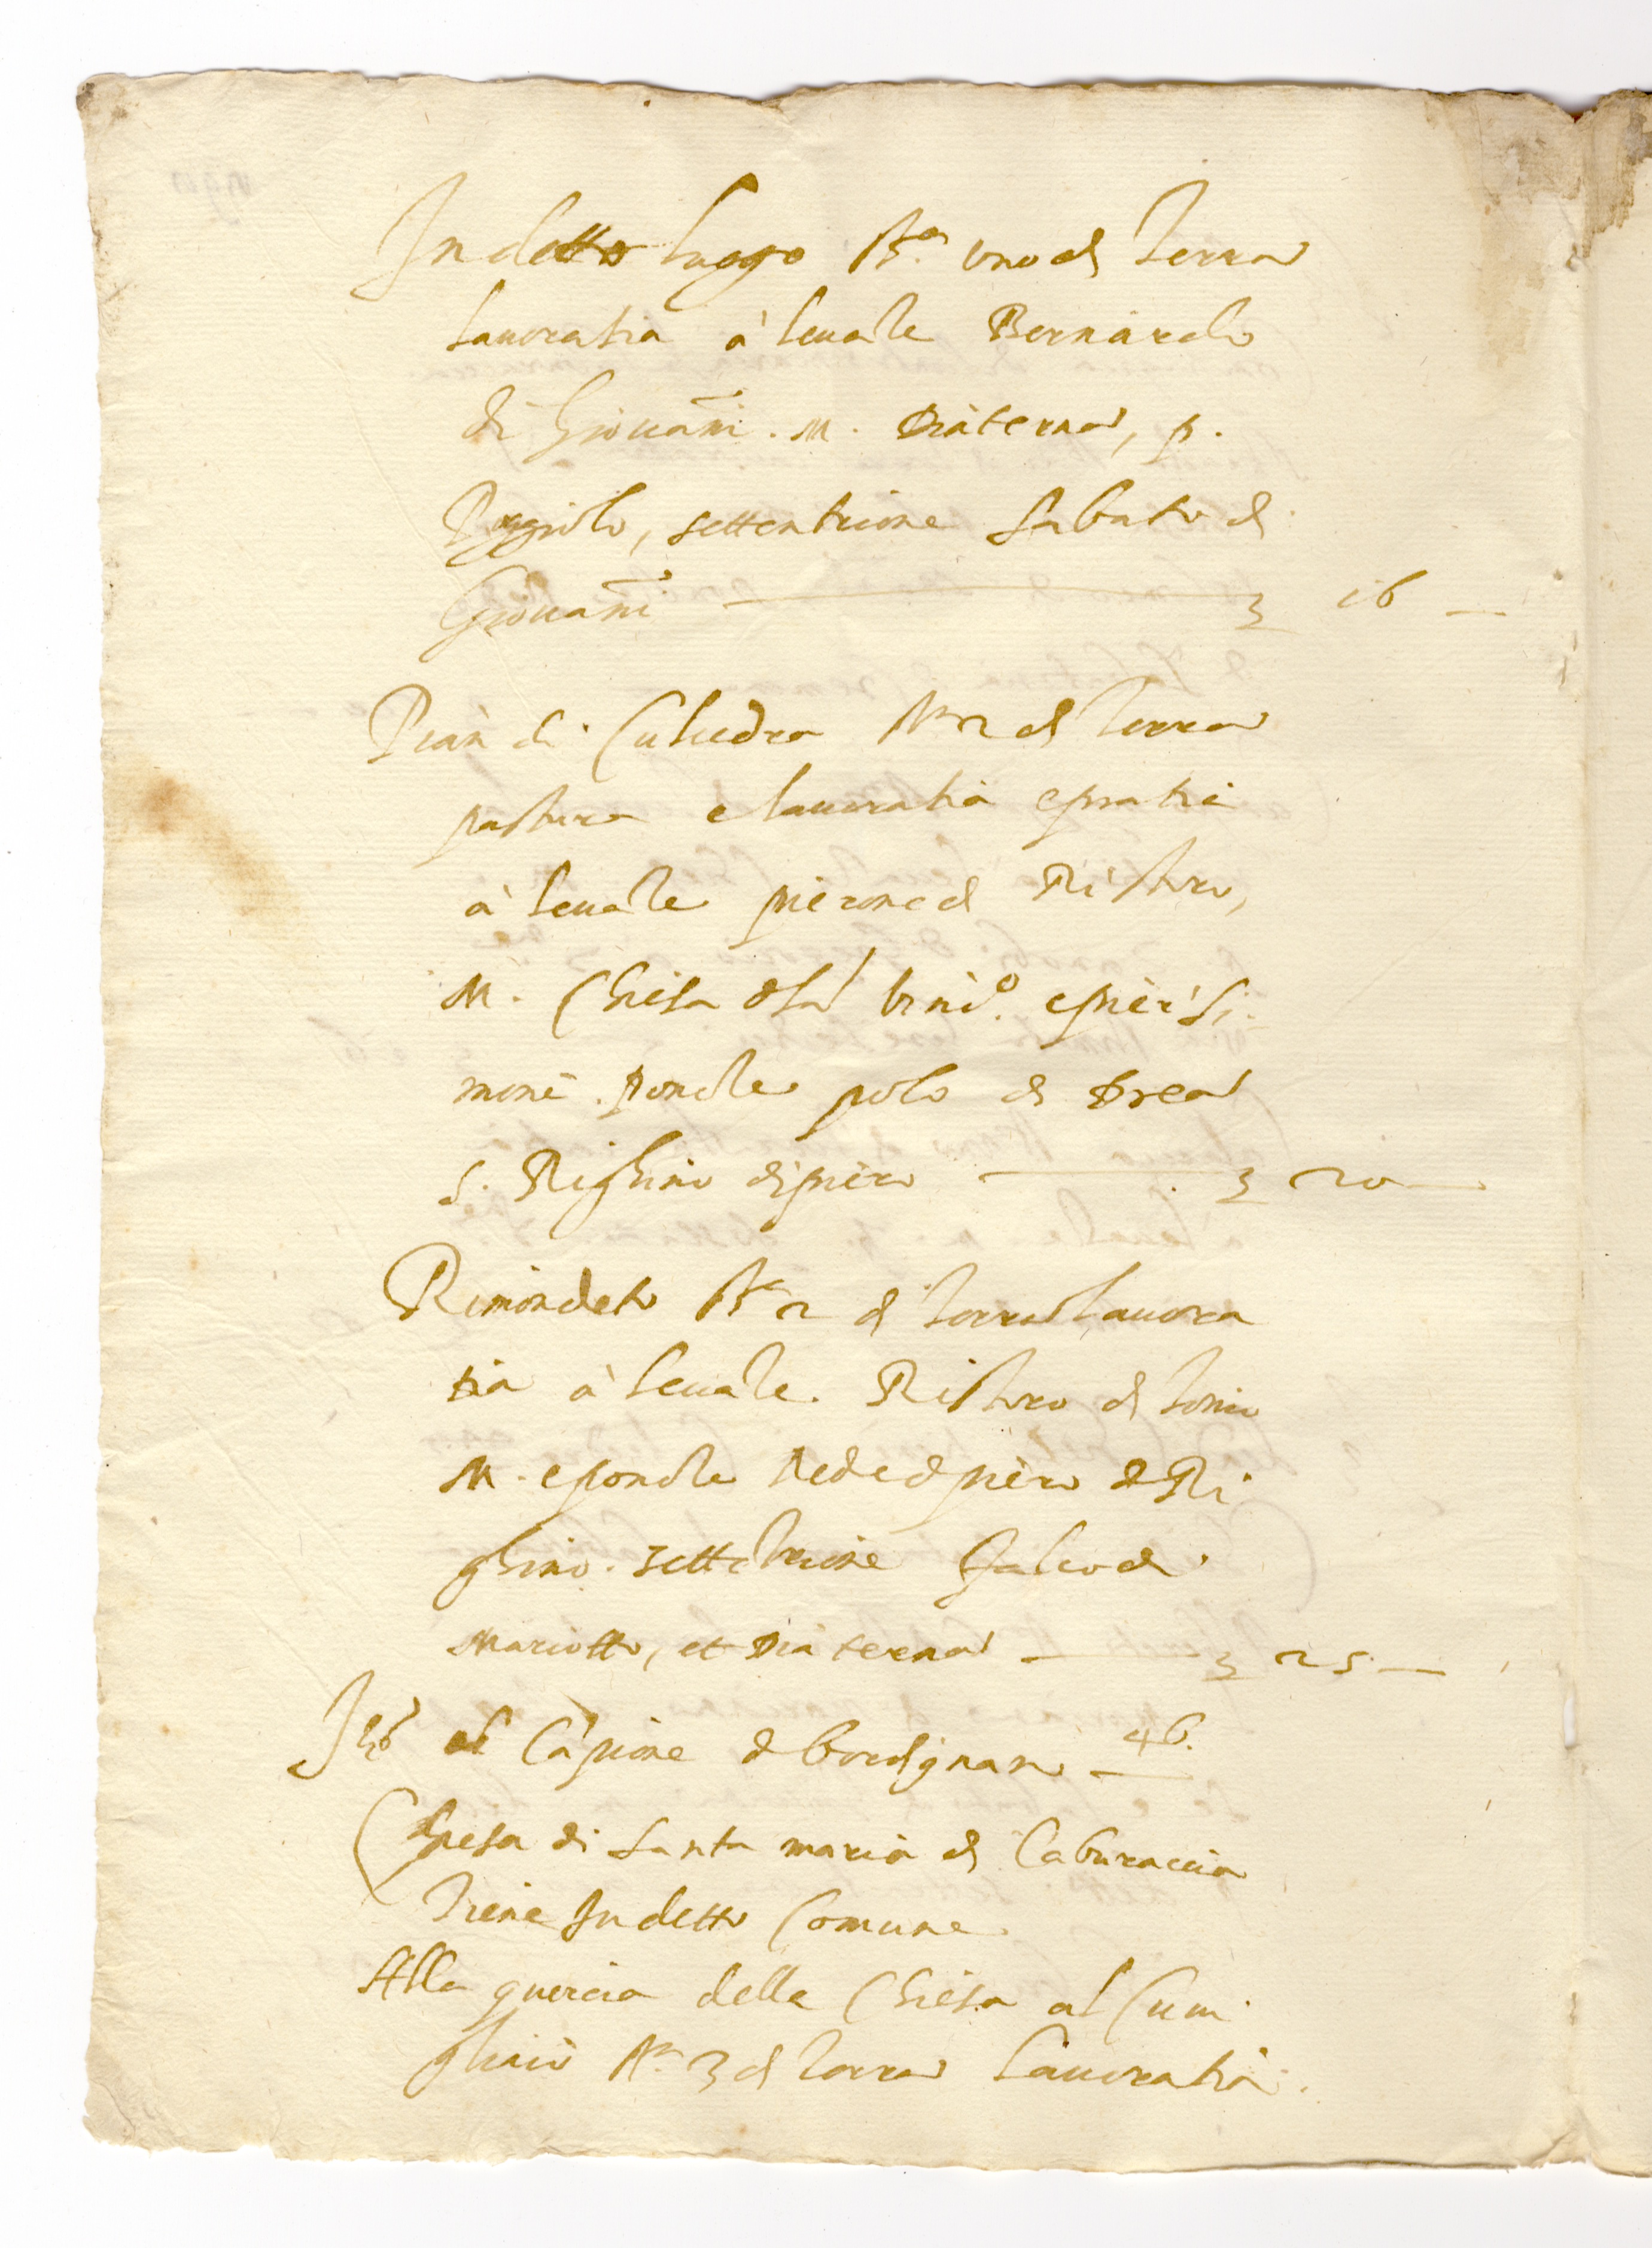 In detto luogo st.a uno di terra
lauoratia à leuate Bernardo
di Giouani . M . Diaterna, p.
Poggiolo, settentrione Sabato di
Giouani 3 16
Pian di st.a 2 di terra
pastura e lauoratia e pratia
à leuate pierone di Ristoro,
M . Chiesa epiero Si
mone . ponete polo di Drea
S . Righino di piero 3 20
Rimondeto st.a 2 di terra lauora
tia à leuate . Ristoro di tonio
M . e ponete rede di piero di Ri
ghino . settetrione di
Mariotto, et Diaterna 3 25
al Capione di bordignano 46.
Chiesa di Santa maria di Caburaccia
tiene In detto Comune
Alla quercia della Chiesa al
st.a 3 di terra lauoratia .